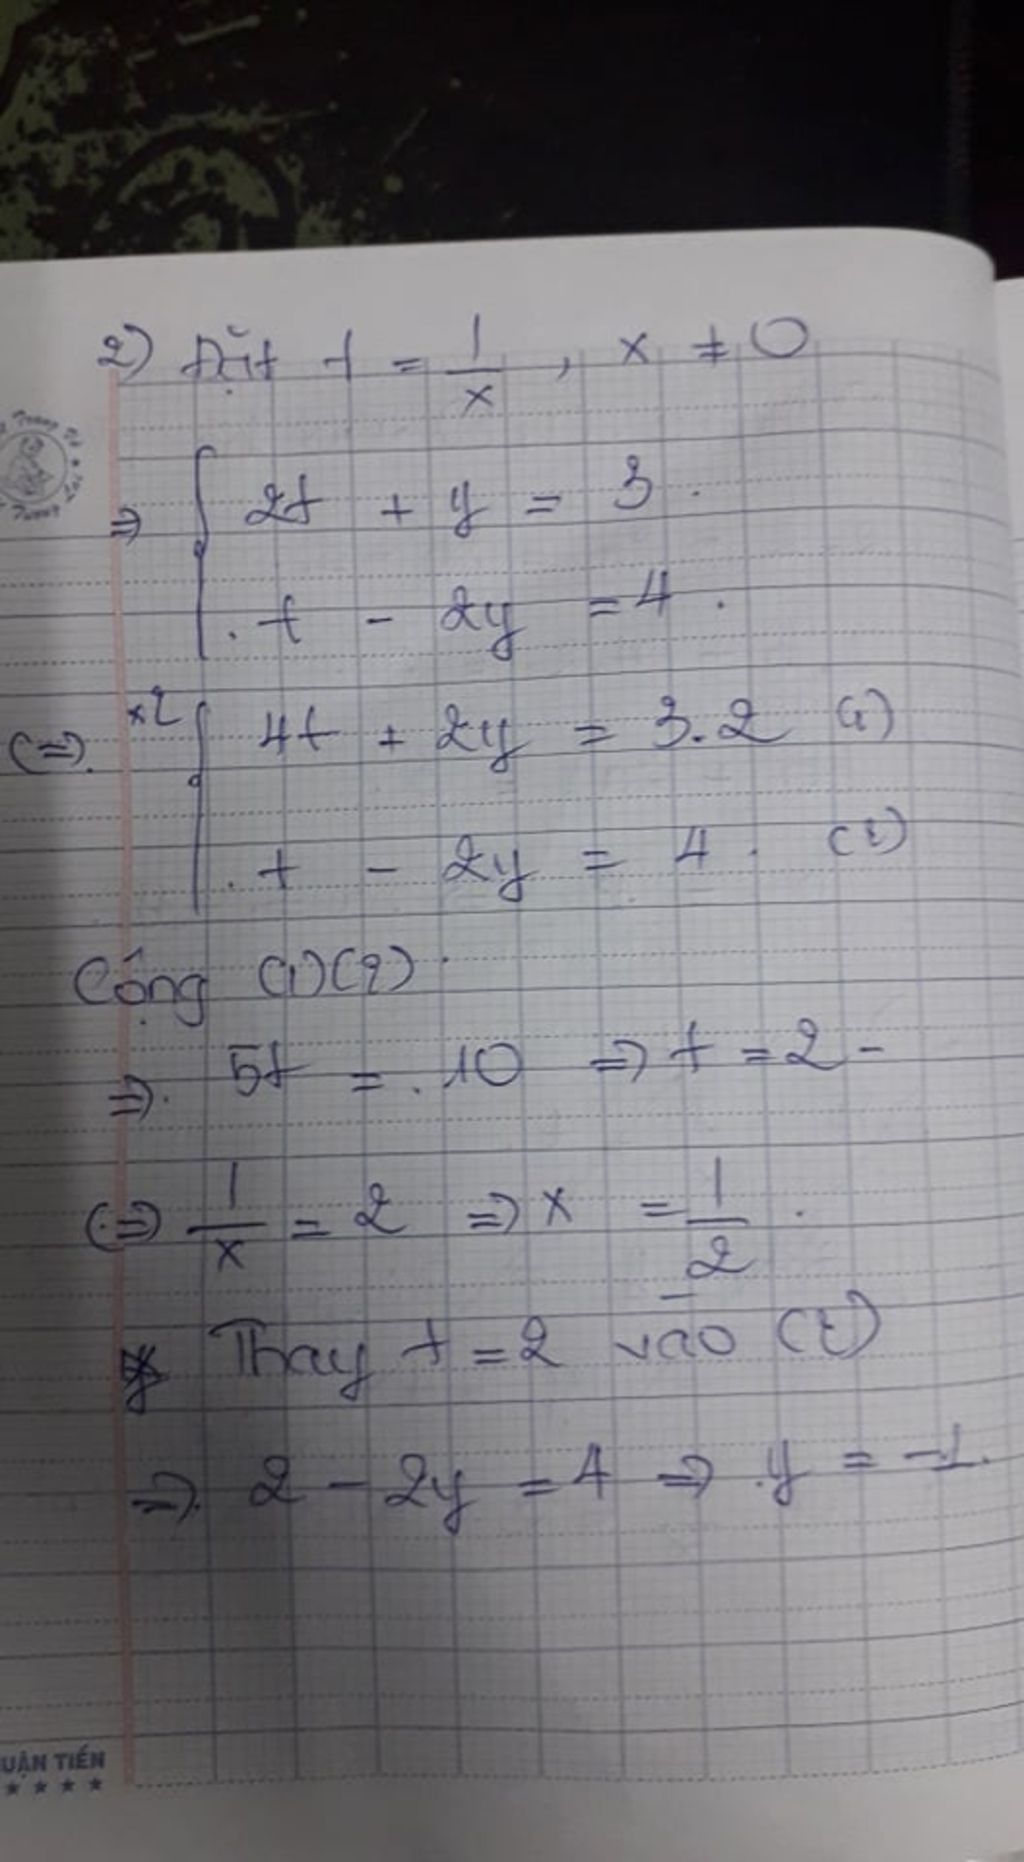 2) Đặt t = 1/x , x ≠ 0
⇒ { 2t + y = 3 .
. t - 2y = 4 .
(⇒). x2 { 4t + 2y = 3.2 (1)
. t - 2y = 4 . (2)
Cộng (1)(2) .
⇒). 5t = . 10 ⇒ t = 2 -
(⇒) 1/x = 2 ⇒ x = 1/2 .
Thay t = 2 vào (2)
⇒). 2 - 2y = 4 ⇒ .y = -1.
UẬN TIẾN
★ ★ ★ ★